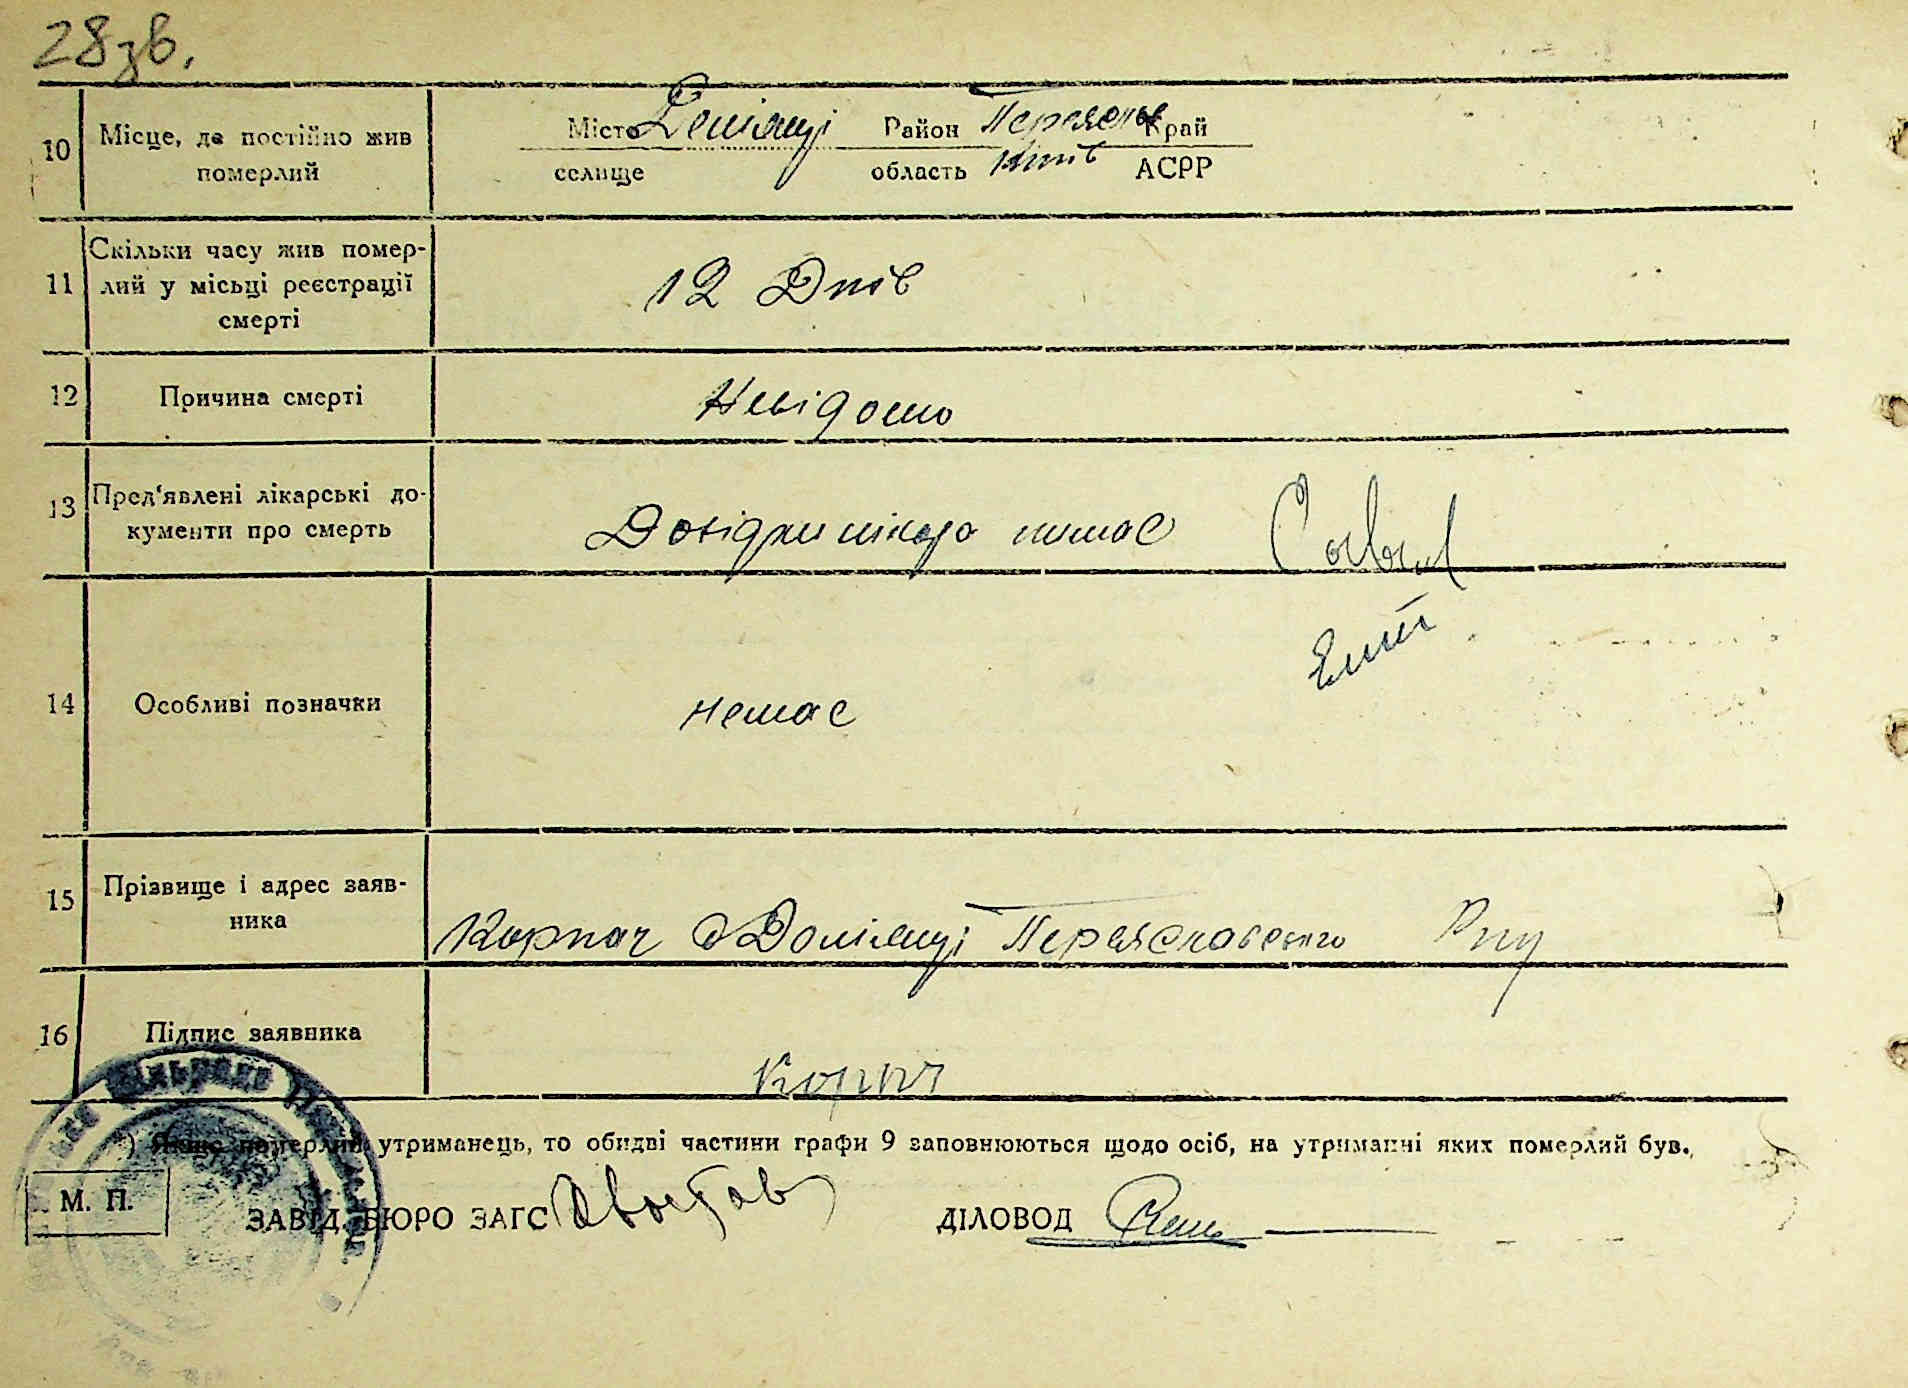 28зв.
10 Місце, де постійно жив померлий
Місто Демʼянці Район Переясл Край
селище область Київ АСРР
11 Скільки часу жив помер-
лий у місьці реєстрації
смерті
12 Днів
12 Причина смерті
Невідомо
13 Пред'явлені лікарські до-
кументи про смерть
Довідки лікаря немає
14 Особливі позначки
немає
15 Прізвище і адрес заяв-
ника
Корпач с Демʼянці Переяславського Рну
16 Підпис заявника
Корпч
*) Якщо померлий утриманець, то обидві частини графи 9 заповнюються щодо осіб, на утриманні яких померлий був.
М. П.
ЗАВІД. БЮРО ЗАГС ДІЛОВОД